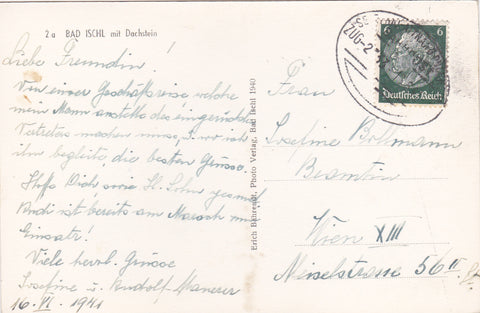 2a BAD ISCHL mit Dachstein
Liebe Freundin!
Von einer Geschäftsreise welche
mein Mann anstelle des eingerückten
Vertreters machen muss, wo ich
ihn begleite die besten Grüsse.
Hoffe Dich sowie Hl. Sohn gesund
Rudi ist bereits am Marsch zum
Einsatz!
Viele herzl. Grüsse
Josefine u. Rudolf
16. VI. 1941
Erich Bährendt, Photo Verlag, Bad Ischl 1940
ZUG-2
6 6
Deutsches Reich
Frau
Josefine Bollmann
Beamtin
Wien XIII
Meiselstrasse 56